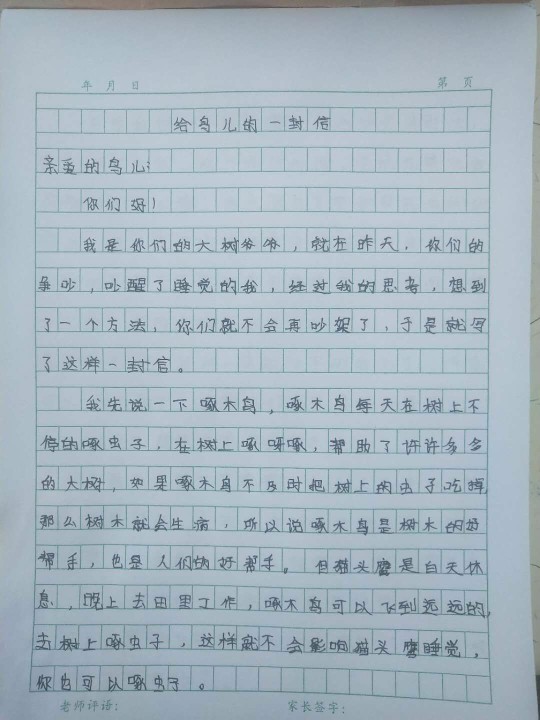 年 月 日 第 页
给鸟儿的一封信
亲爱的鸟儿:
你们好!
我是你们的大树爷爷，就在昨天，你们的
争吵，吵醒了睡觉的我，经过我的思考，想到
了一个方法，你们就不会再吵架了，于是就写
了这样一封信。
我先说一下啄木鸟，啄木鸟每天在树上不
停的啄虫子，在树上啄呀啄，帮助了许许多多
的大树，如果啄木鸟不及时把树上的虫子吃掉
那么树木就会生病，所以说啄木鸟是树木的好
帮手，也是人们的好帮手。但猫头鹰是白天休
息，晚上去田里工作，啄木鸟可以飞到远远的，
去树上啄虫子，这样就不会影响猫头鹰睡觉，
你也可以啄虫子。
老师评语: 家长签字: